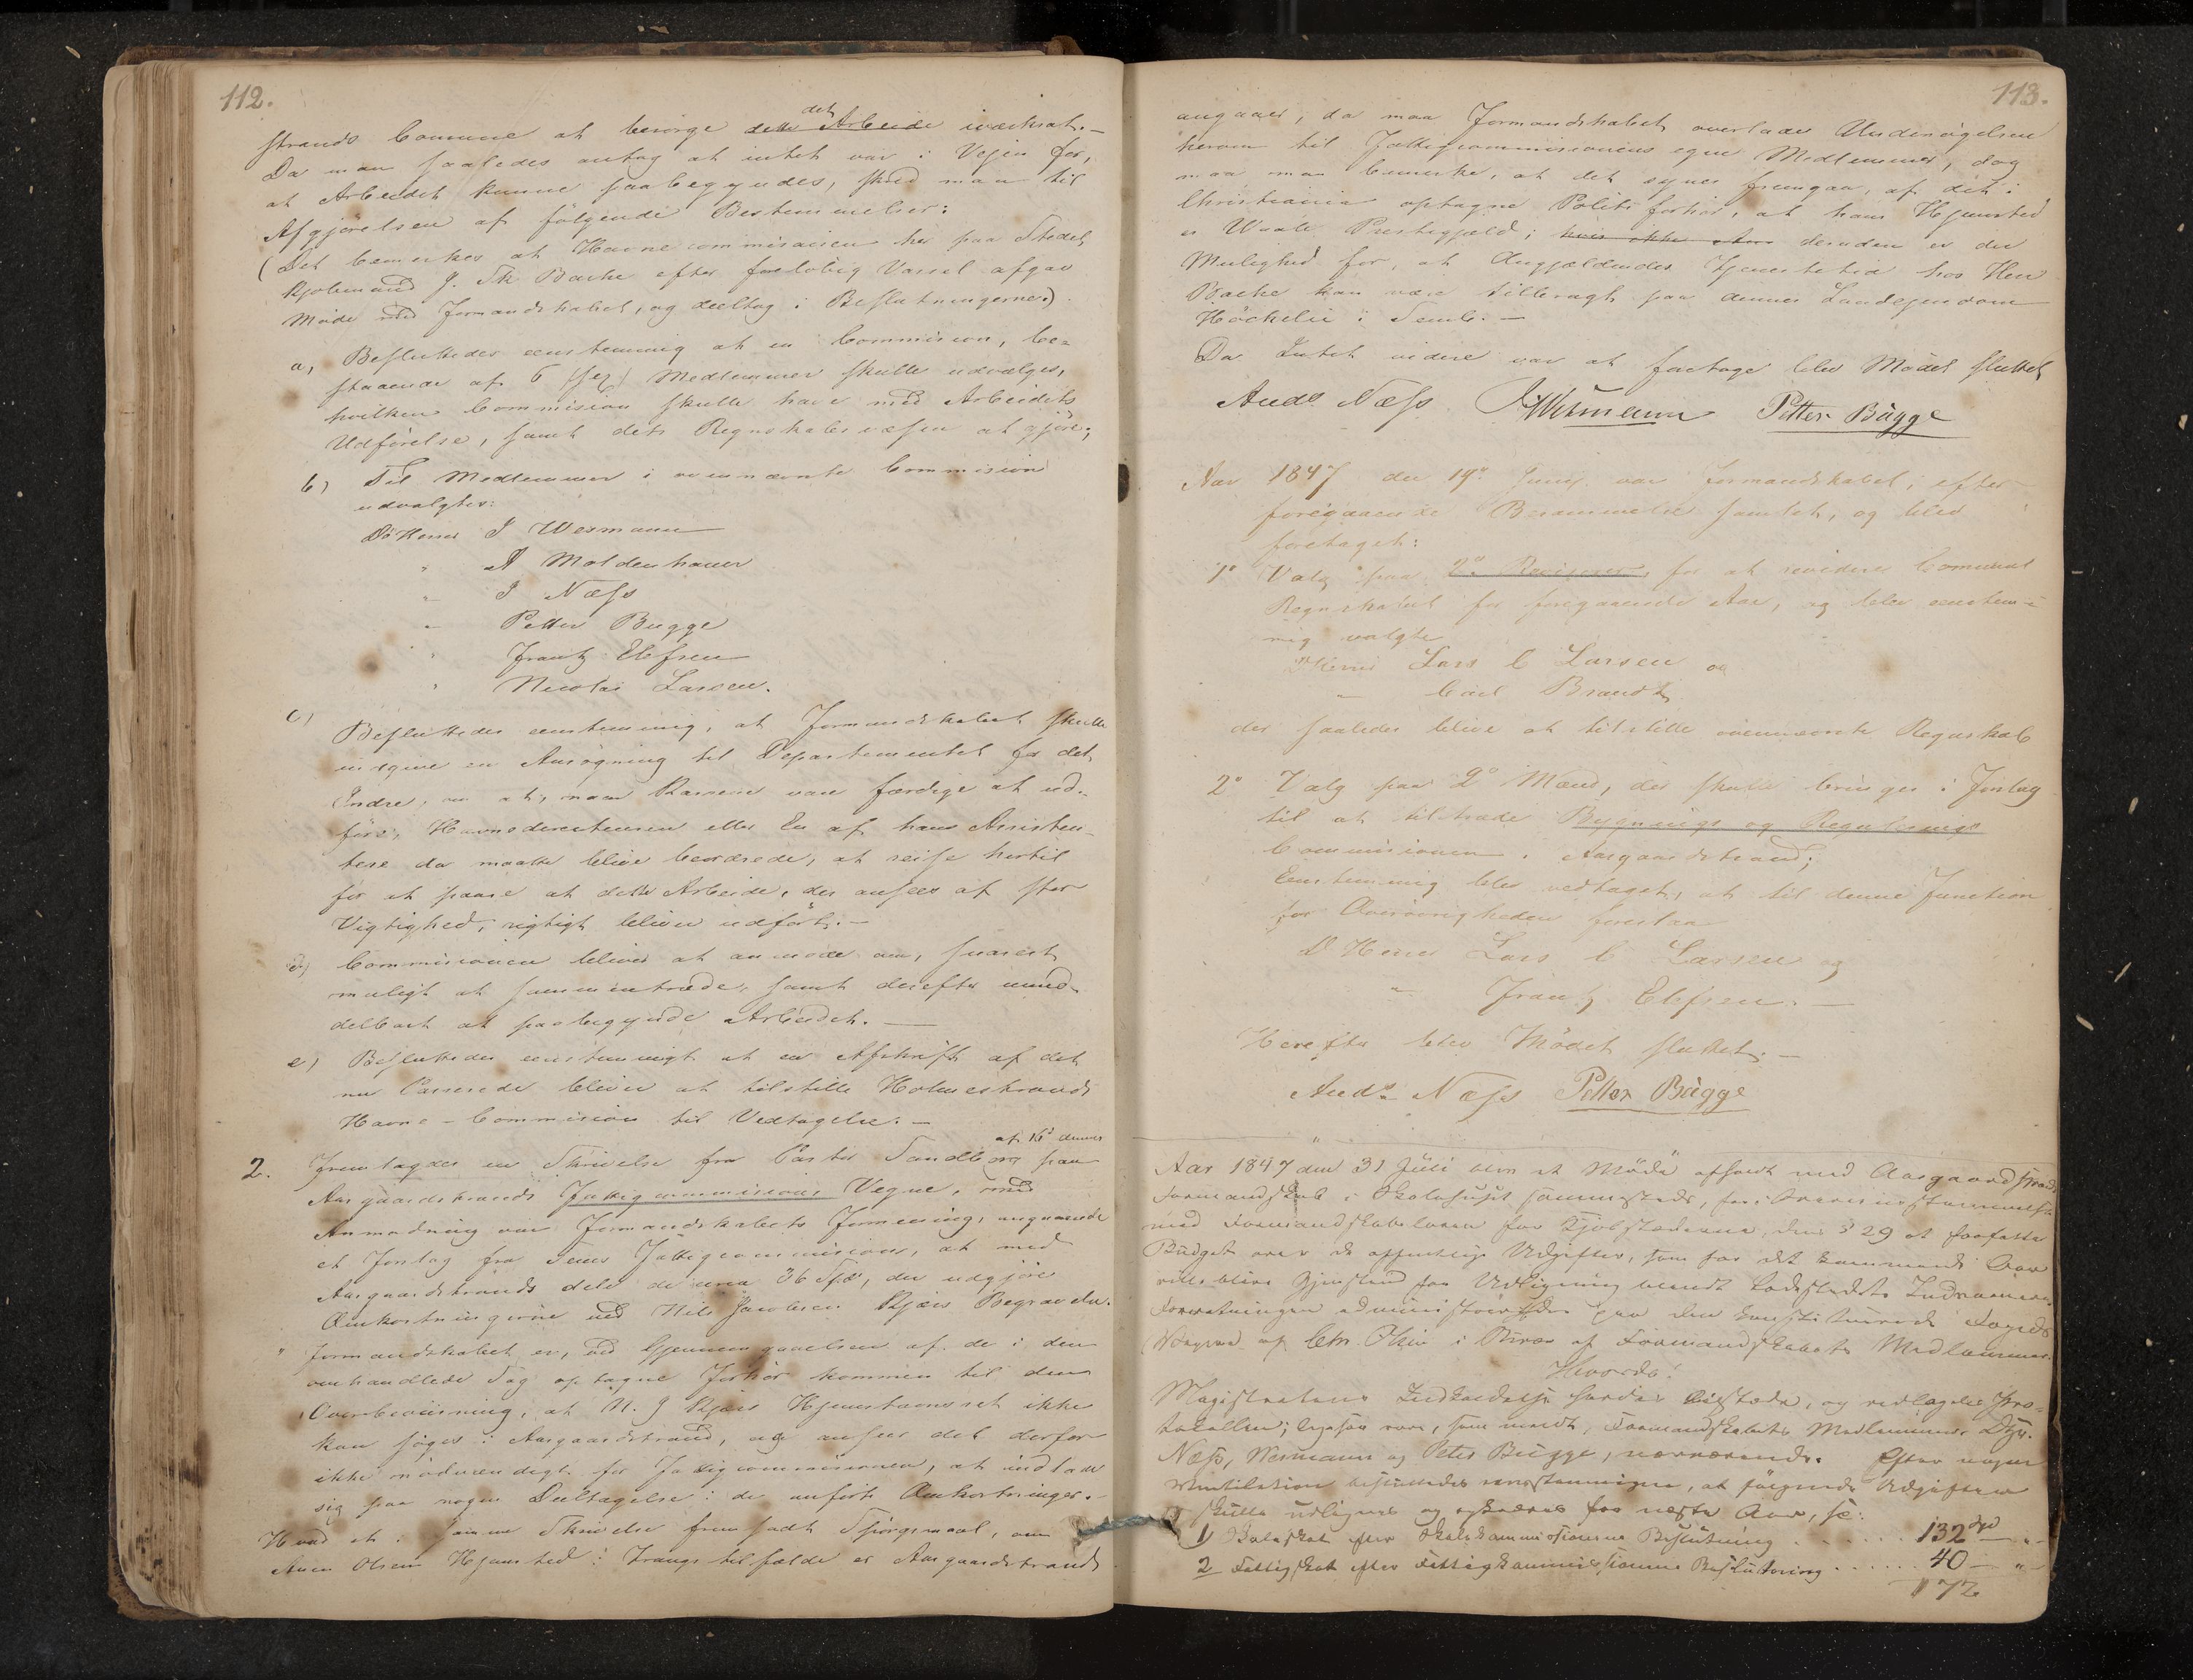 112.
strands Comune at besörge dette det Arbeide iværksat. —
Da man saaledes antog at intet var i Vejen for,
at Arbeidet kunne paabegyndes, skred man til
Afgjörelsen af fölgende Bestemmelser:
(Det bemerkes at Havnecommisairen her paa Stedet
Kjöbmand J. Th. Backe efter foreløbig Varsel afgav
Möde med Formandskabet, og deeltog i Beslutningerne.)
a, Besluttedes eenstemmig at en Commision, be=
staaende af 6 /sex/ Medlemmer skulle udvælges,
hvilken Commision skulle have med Arbeidets
Udförelse, samt dets Regnskabsvæsen at gjöre;
b) Til Medlemmer i ovennævnte Commision
udvalgtes:
DHerrer J Wermann
" A Moldenhauer
" J Næss
" Petter Bugge
" Frantz Ellefsen
" Nicolai Larsen.
c) Besluttedes eenstemmig, at Formandskabet skulle
indgive en Ansögning til Departementet for det
Indre, om at, naar Karrene vare færdige at ud-
före, Havnedirecteuren eller En af hans Assisten-
tere da maatte blive beordrede, at reise hertil
for at paase at dette Arbeide, der ansees af stor
Vigtighed, rigtigt bliver udfört. —
d) Commisionen bliver at anmode om, snarest
muligt at sammentræde, samt derefter umid-
delbart at paabegynde Arbeidet. —
e) Besluttedes eenstemmigt at en Afskrift af det
nu Passerede bliver at tilstille Holmestrands
Havne-Commision til Vedtagelse. —
2. Fremlagdes en Skrivelse fra Pastor Sandberg af 16d dennes paa
Aasgaardstrands Fattigcommisions Vegne, med
Anmodning om Formandskabets Formening, angaaende
et Forslag fra Sems Fattigcommision, at med
Aasgaardstrands dele de circa 36 Spd, der udgjöre
Omkostningerne ved Nils Jacobsen Kjærs Begravelse.
" Formandskabet er, ved Gjennemgaaelsen af de i den
omhandlede Sag optagne Forhör kommen til den
Overbeviisning, at N. J Kjærs Hjemstavnsret ikke
kan söges i Aasgaardstrand, og anseer det derfor
ikke nödvendigt for Fattigcommisionen, at indlade
sig paa nogen Deeltagelse i de anförte Omkostninger. —
Hvad et i samme Skrivelse fremsadt Spörgsmaal, om
Anen Olsens Hjemsted i Trangstilfælde er Aasgaardstrand
113.
angaaer, da maa Formandskabet overlades Undersögelsen
herom til Fattigcommisionens egne Medlemmer, dog
maa man bemerke, at det synes fremgaa, af det i
Christiania optagne Politiforhör, at hans Hjemsted
er Waale Præstegjæld; hvis ikke desuden er der
Mulighed for, at Angjældendes Tjenestetid hos Herr
Backe kan være tilbragt paa dennes Landejendom
Höckelie i Semb. —
Da Intet videre var at foretage blev Mödet sluttet
Ands. Næss JWermann Petter Bügge
Aar 1847 den 19de Junij var Formandskabet, efter
foregaaende Berammelse samlet, og blev
foretaget:
1o Valg paa 2de Revisorer for at revidere Communal
Regnskabet for foregaaende Aar, og blev eenstem=
mig valgte
DHerrer Lars C Larsen og
" Carl Brandt
der saaledes blive at tilstille ovennævnte Regnskab
2o Valg paa 2o Mænd, der skulle bringes i Forslag
til at tiltræde Bygnings og Regulerings
Commisionen i Aasgaardstrand;
Eenstemmig blev vedtaget, at til denne Function
for Överövrigheden foreslaa
DHerrer Lars C Larsen og
" Frantz Ellefsen. —
Herefter blev Mödet sluttet. —
Ands. Næss Petter Bügge
Aar 1847 den 31 Jüli blev et Möde afholdt med Aasgaardstrands
Formandskab i Skolehuset sammesteds, for i Overeensstemmelse
med Formandskabsloven for Kjöbstæderne, dens § 29 at forfatte
Büdget over de offentlige Udgifter, som for det kommende Aar
ville blive Gjenstand for Udligning blandt Ladestedets Indvaanere.
Forretningen administreredes paa den constituerede Fogeds
Vegne af Chr. Olsen i Overvær af Formandskabets Medlemmer.
Hvorda!
Magistratens Indkaldelse havdes tilstede, og vedlagdes Pro=
tokollen; ligesom vare, som meldt, Formandskabets Medlemmer DHrr.
Næss, Wermann og Peter Bügge, nærværende. Efter nogen
Ventilation besluttedes eenstemmigen, at fölgende Udgifter
skulle udlignes og for næste Aar, sc:
1) Skoleskat efter Skolekommissionens Beslütning . . . . . . 132 Spd — " —
2 Fattigskat efter Fattigkommissionens Beslutning . . . . . 40 — " —
172